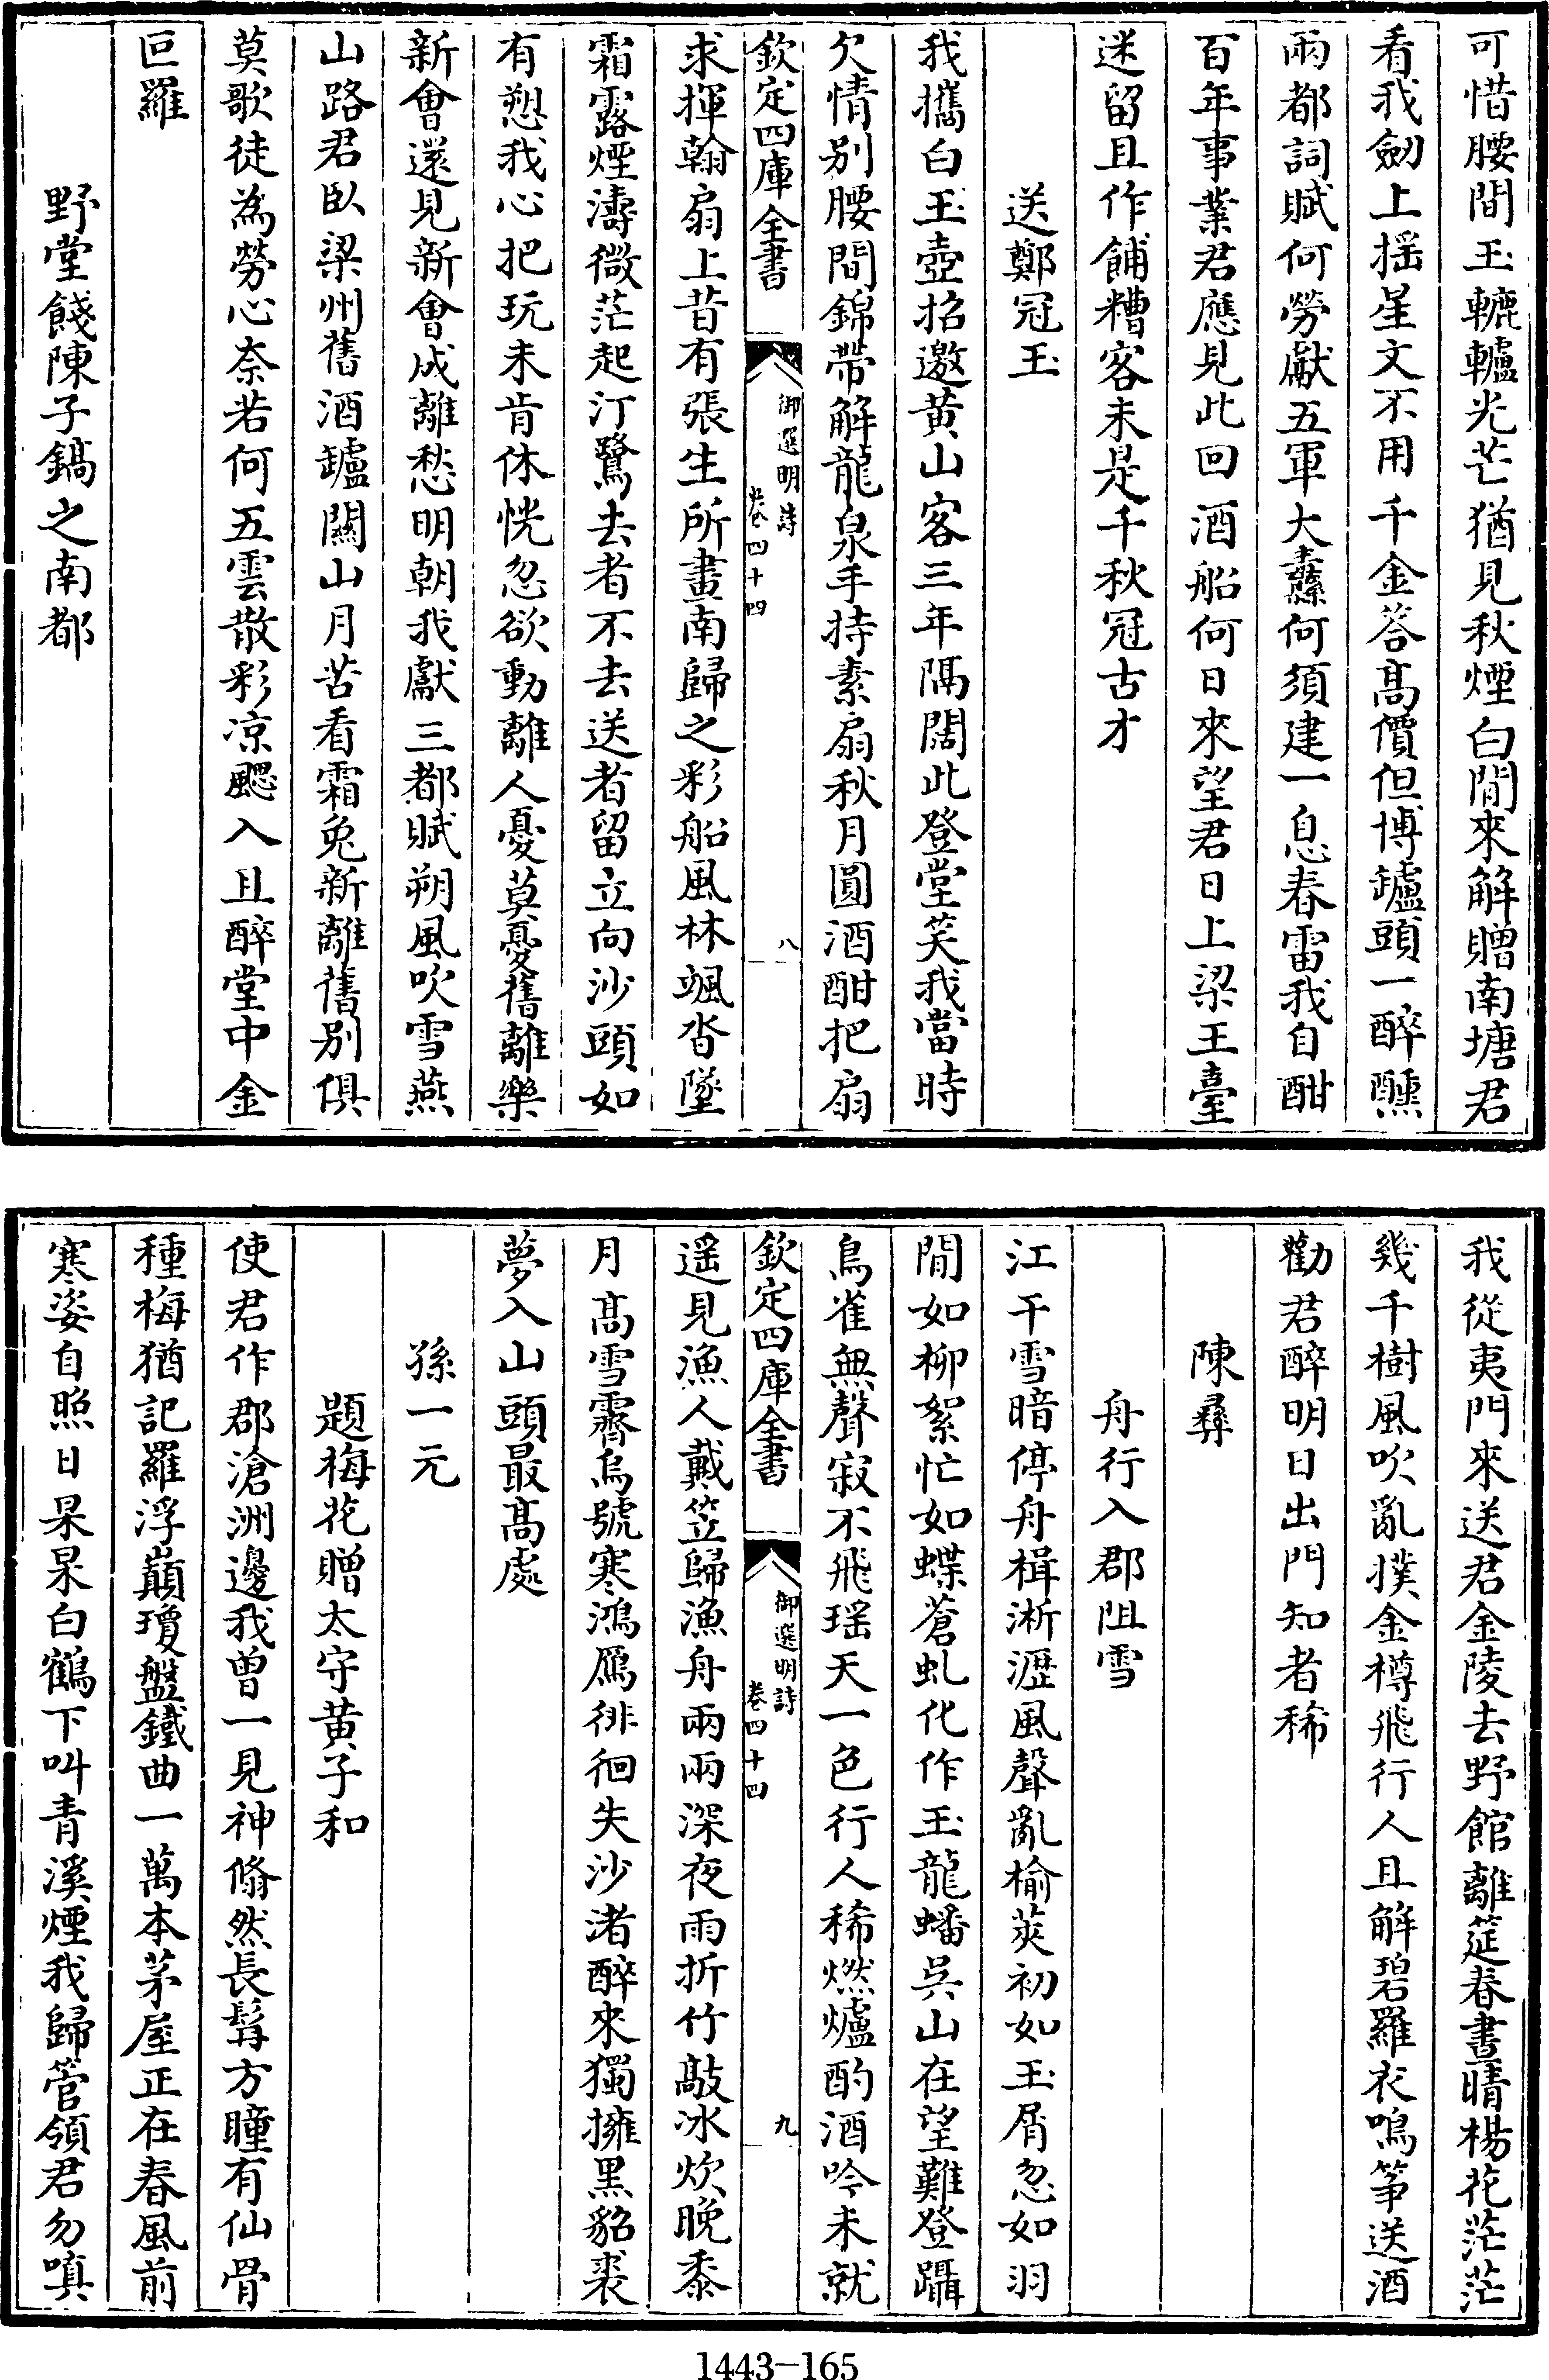 可惜腰間玉轆轤光芒猶見秋煙白閒來解贈南塘君
看我劒上揺星文不用千金答髙價但博罏頭一醉醺
兩都詞賦何勞獻五軍大纛何須建一息春雷我自酣
百年事業君應見此回酒船何日來望君日上梁王臺
迷留且作餔糟客未是千秋冠古才
送鄭冠玉
我攜白玉壺招邀黄山客三年隔闊此登堂笑我當時
欠情别腰間錦帶解龍泉手持素扇秋月圓酒酣把扇
欽定四庫全書
御選明詩
卷四十四
八
求揮翰扇上昔有張生所畫南歸之彩船風林颯沓墜
霜露煙濤微茫起汀鷺去者不去送者留立向沙頭如
有愬我心把玩未肯休恍忽欲動離人憂莫憂舊離樂
新會還見新會成離愁明朝我獻三都賦朔風吹雪燕
山路君臥梁州舊酒罏關山月苦看霜兔新離舊别俱
莫歌徒為勞心奈若何五雲散彩凉颸入且醉堂中金
叵羅
野堂餞陳子鎬之南都
我從夷門來送君金陵去野館離筵春晝晴楊花茫茫
幾千樹風吹亂撲金樽飛行人且解碧羅衣鳴筝送酒
勸君醉明日出門知者稀
陳彝
舟行入郡阻雪
江干雪暗停舟楫淅瀝風聲亂榆莢初如玉屑忽如羽
閒如柳絮忙如蝶蒼虬化作玉龍蟠吳山在望難登躡
鳥雀無聲寂不飛瑶天一色行人稀燃爐酌酒吟未就
欽定四庫全書
御選明詩
卷四十四
九
遥見漁人戴笠歸漁舟兩兩深夜雨折竹敲冰炊晚黍
月髙雪霽烏號寒鴻鴈徘徊失沙渚醉來獨擁黑貂裘
夢入山頭最髙處
孫一元
題梅花贈太守黄子和
使君作郡滄洲邊我曾一見神翛然長髯方瞳有仙骨
種梅猶記羅浮巔瓊盤鐵曲一萬本茅屋正在春風前
寒姿自照日杲杲白鶴下叫青溪煙我歸管領君勿嗔
1443-165